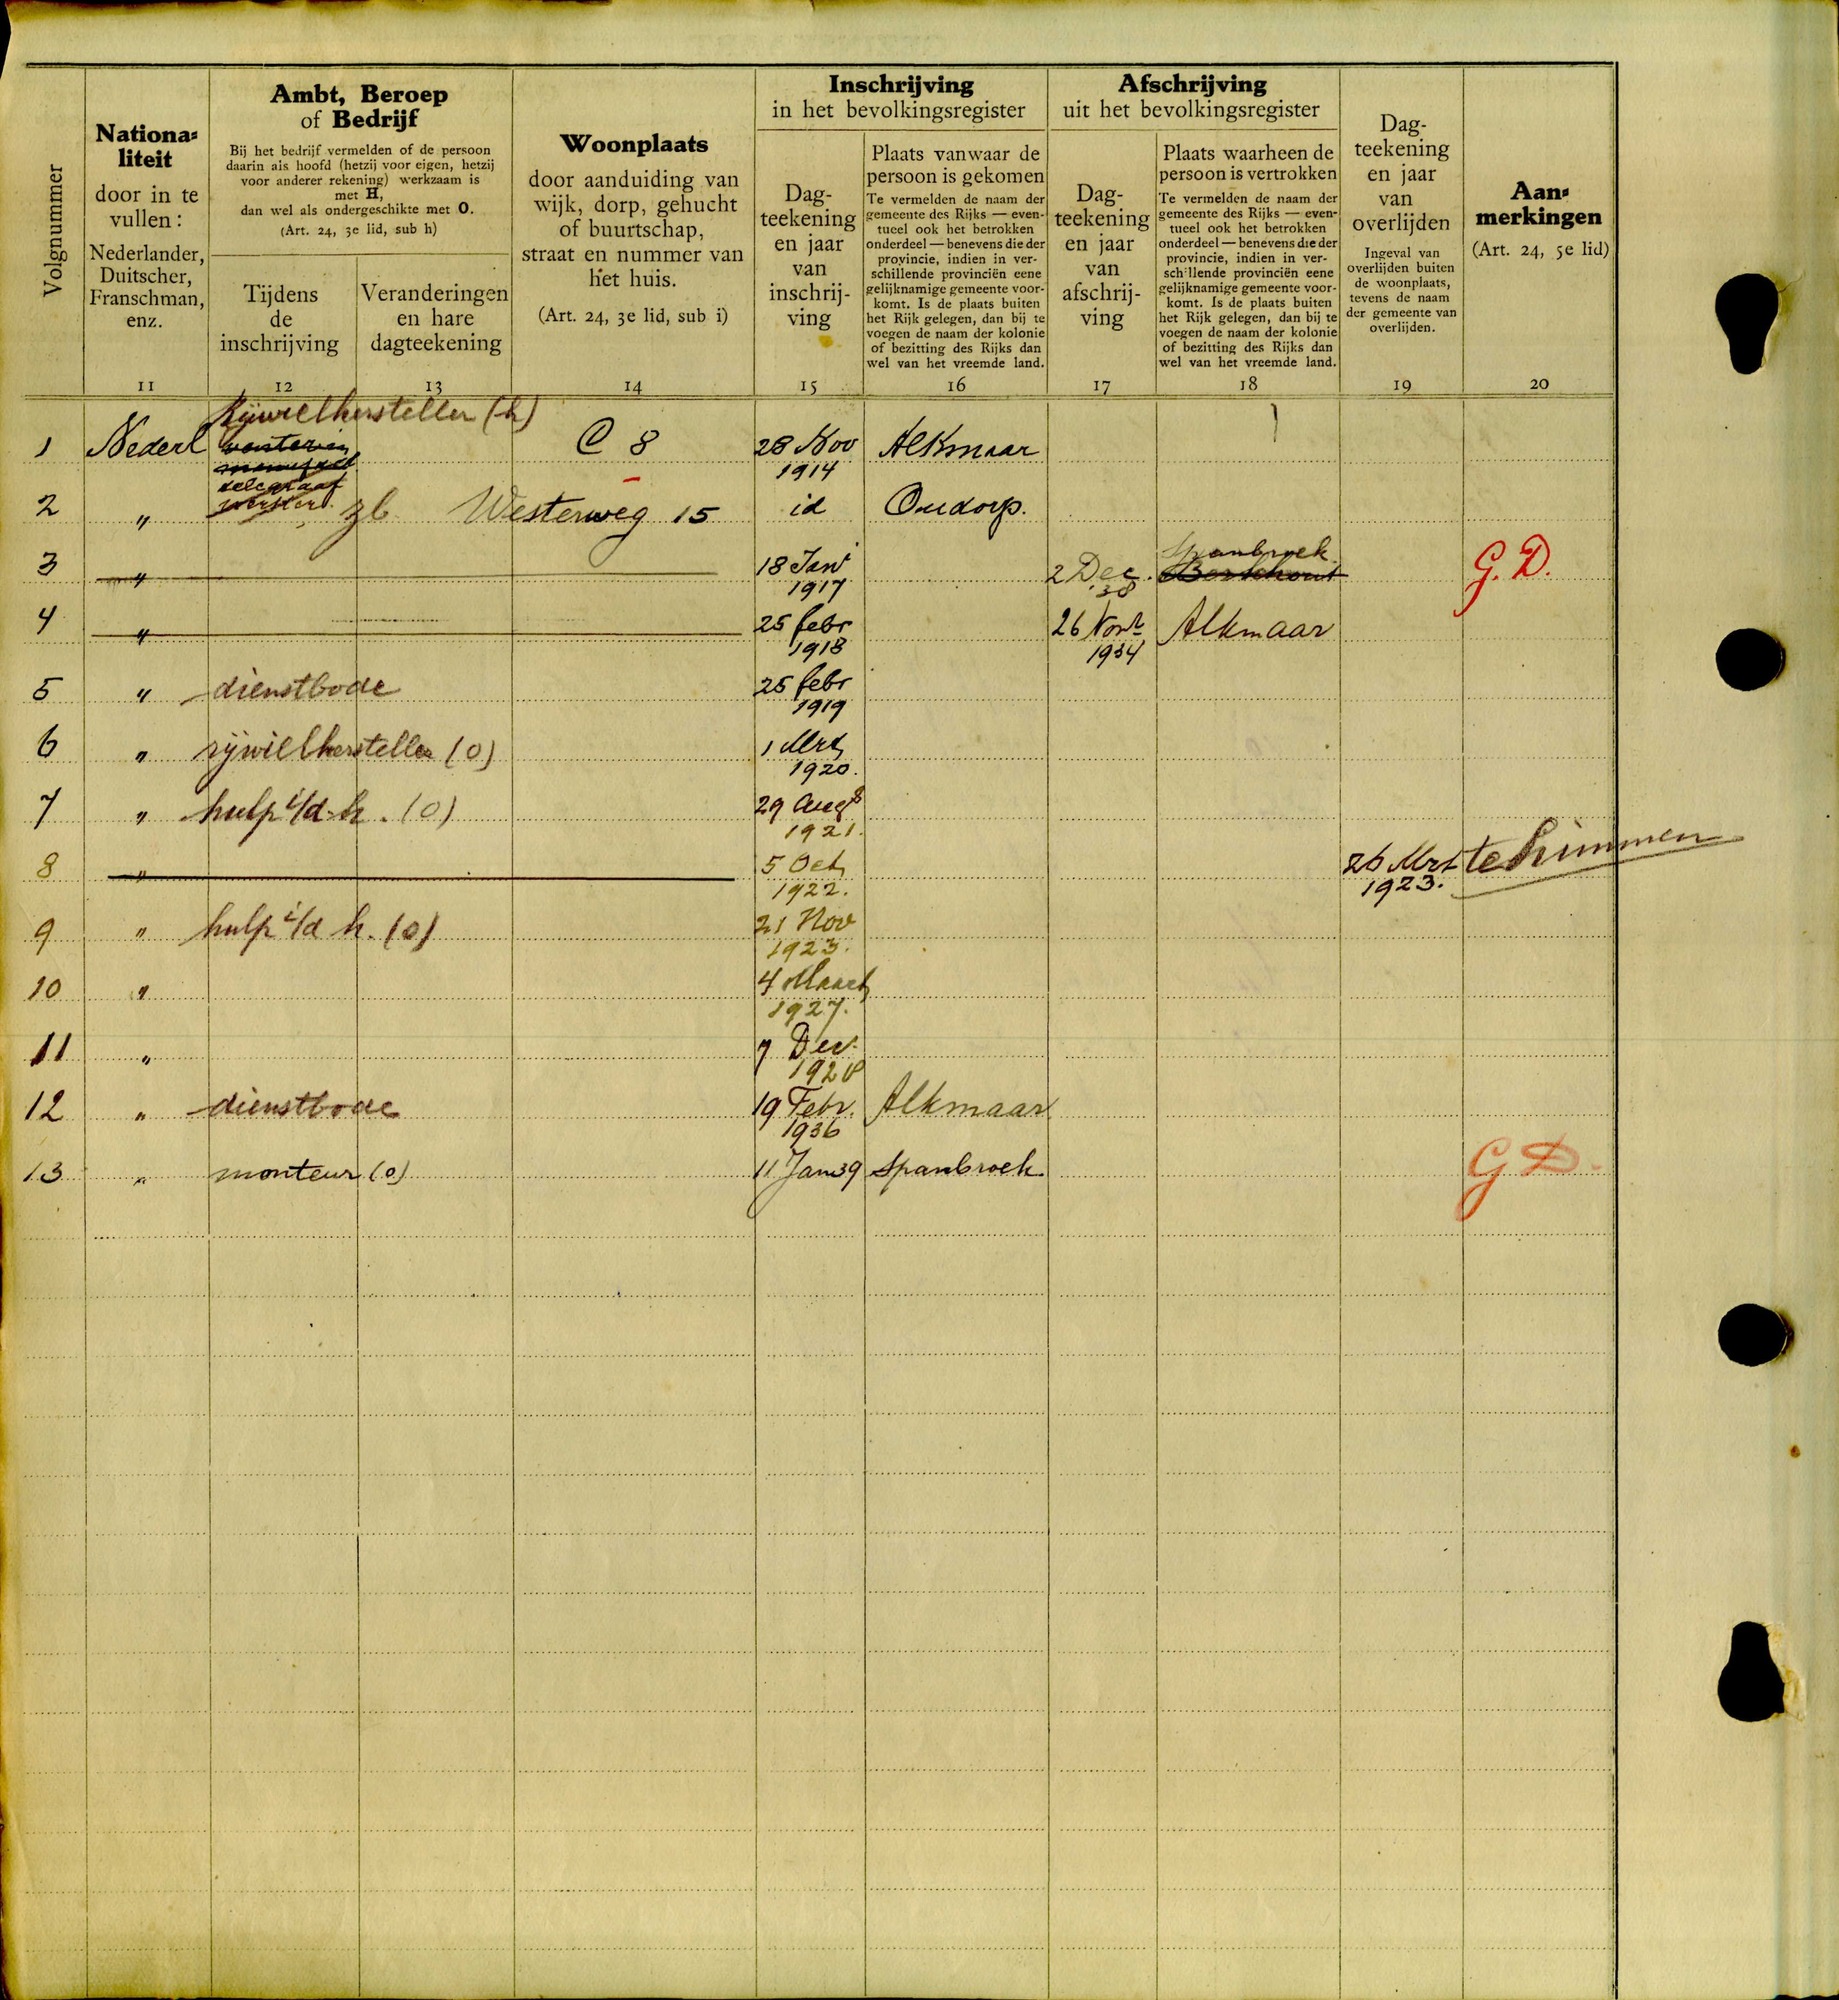 Volgnummer
Nationa-
liteit
door in te
vullen:
Nederlander,
Duitscher,
Franschman,
enz.
11
Ambt, Beroep
of Bedrijf
Bij het bedrijf vermelden of de persoon
daarin als hoofd (hetzij voor eigen, hetzij
voor anderer rekening) werkzaam is
met H,
dan wel als ondergeschikte met O.
(Art. 24, 3e lid, sub h)
Tijdens
de
inschrijving
12
Veranderingen
en hare
dagteekening
13
Woonplaats
door aanduiding van
wijk, dorp, gehucht
of buurtschap,
straat en nummer van
het huis.
(Art. 24, 3e lid, sub i)
14
Inschrijving
in het bevolkingsregister
Dag-
teekening
en jaar
van
inschrij-
ving
15
Plaats vanwaar de
persoon is gekomen
Te vermelden de naam der
gemeente des Rijks — even-
tueel ook het betrokken
onderdeel — benevens die der
provincie, indien in ver-
schillende provinciën eene
gelijknamige gemeente voor-
komt. Is de plaats buiten
het Rijk gelegen, dan bij te
voegen de naam der kolonie
of bezitting des Rijks dan
wel van het vreemde land.
16
Afschrijving
uit het bevolkingsregister
Dag-
teekening
en jaar
van
afschrij-
ving
17
Plaats waarheen de
persoon is vertrokken
Te vermelden de naam der
gemeente des Rijks — even-
tueel ook het betrokken
onderdeel — benevens die der
provincie, indien in ver-
schillende provinciën eene
gelijknamige gemeente voor-
komt. Is de plaats buiten
het Rijk gelegen, dan bij te
voegen de naam der kolonie
of bezitting des Rijks dan
wel van het vreemde land.
18
Dag-
teekening
en jaar
van
overlijden
Ingeval van
overlijden buiten
de woonplaats,
tevens de naam
der gemeente van
overlijden.
19
Aan-
merkingen
(Art. 24, 5e lid)
20
Rijwielhersteller (h)
1 Nederl C 8 28 Nov Alkmaar
1914
telegraaf
werker
2 " zb Westerweg 15 id Oudorp.
Spanbroek
3 " 18 Jan 2 Dec. Berkhout G. D.
1917 '38
4 " 25 febr 26 Novr Alkmaar
1918 1934
5 " dienstbode 25 febr
1919
6 " rijwielhersteller (o) 1 Mrt
1920.
7 " hulp i/d h. (o) 29 Augs
1921.
8 " 5 Oct 26 Mrt te Limmen
1922. 1923.
9 " hulp i/d h. (o) 21 Nov
1923.
10 " 4 Maart
1927.
11 " 7 Dec.
1928
12 " dienstbode 19 Febr. Alkmaar
1936
13 " monteur (o) 11 Jan 39 Spanbroek. G D.